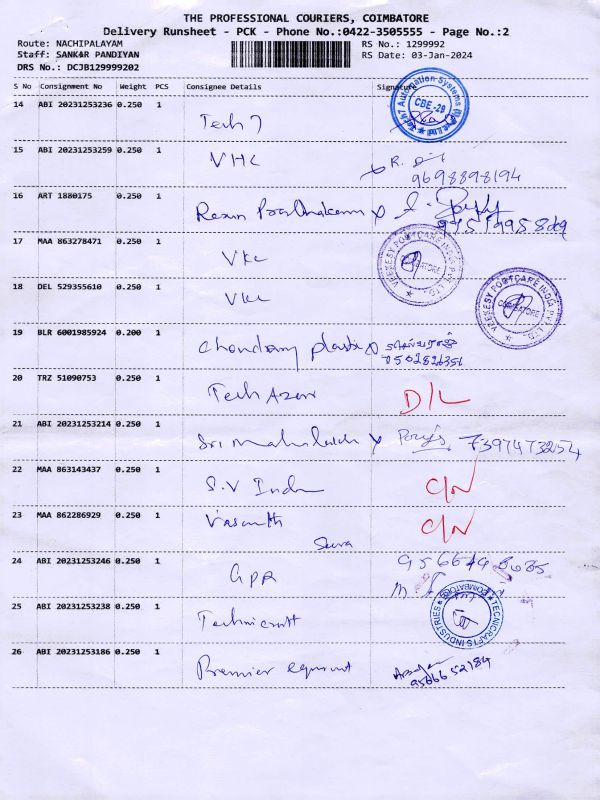 THE PROFESSIONAL COURIERS, COIMBATORE
Delivery Runsheet - PCK - Phone No.:0422-3505555 - Page No.:2
Route: NACHIPALAYAM
RS No.: 1299992
Staff: SANKAR PANDIYAN
RS Date: 03-Jan-2024
DRS No.: DCJB129999202
S No Consignment No Weight PCS Consignee Details Signature
14 ABI 20231253236 0.250 1
Tech 7
Tech7 Automation Systems (P) Ltd
CBE -29
15 ABI 20231253259 0.250 1
VHC R.
9698898194
16 ART 1880175 0.250 1
17 MAA 863278471 0.250 1
VKC
VEEKESY POLYCARE INDIA PVT. LTD.
COIMBATORE
18 DEL 529355610 0.250 1
VKC
VEEKESY POLYCARE INDIA PVT. LTD.
COIMBATORE
19 BLR 6001985924 0.200 1
20 TRZ 51090753 0.250 1
Tech Azon D/L
21 ABI 20231253214 0.250 1
Sri Mahalakshmi x 7397473254
22 MAA 863143437 0.250 1
S.V Indu C/N
23 MAA 862286929 0.250 1
Vasanth C/N
24 ABI 20231253246 0.250 1
GPR
25 ABI 20231253238 0.250 1
Technicraft
TECNICRAFTS INDUSTRIES
COIMBATORE
26 ABI 20231253186 0.250 1
Premier equment
9566652184